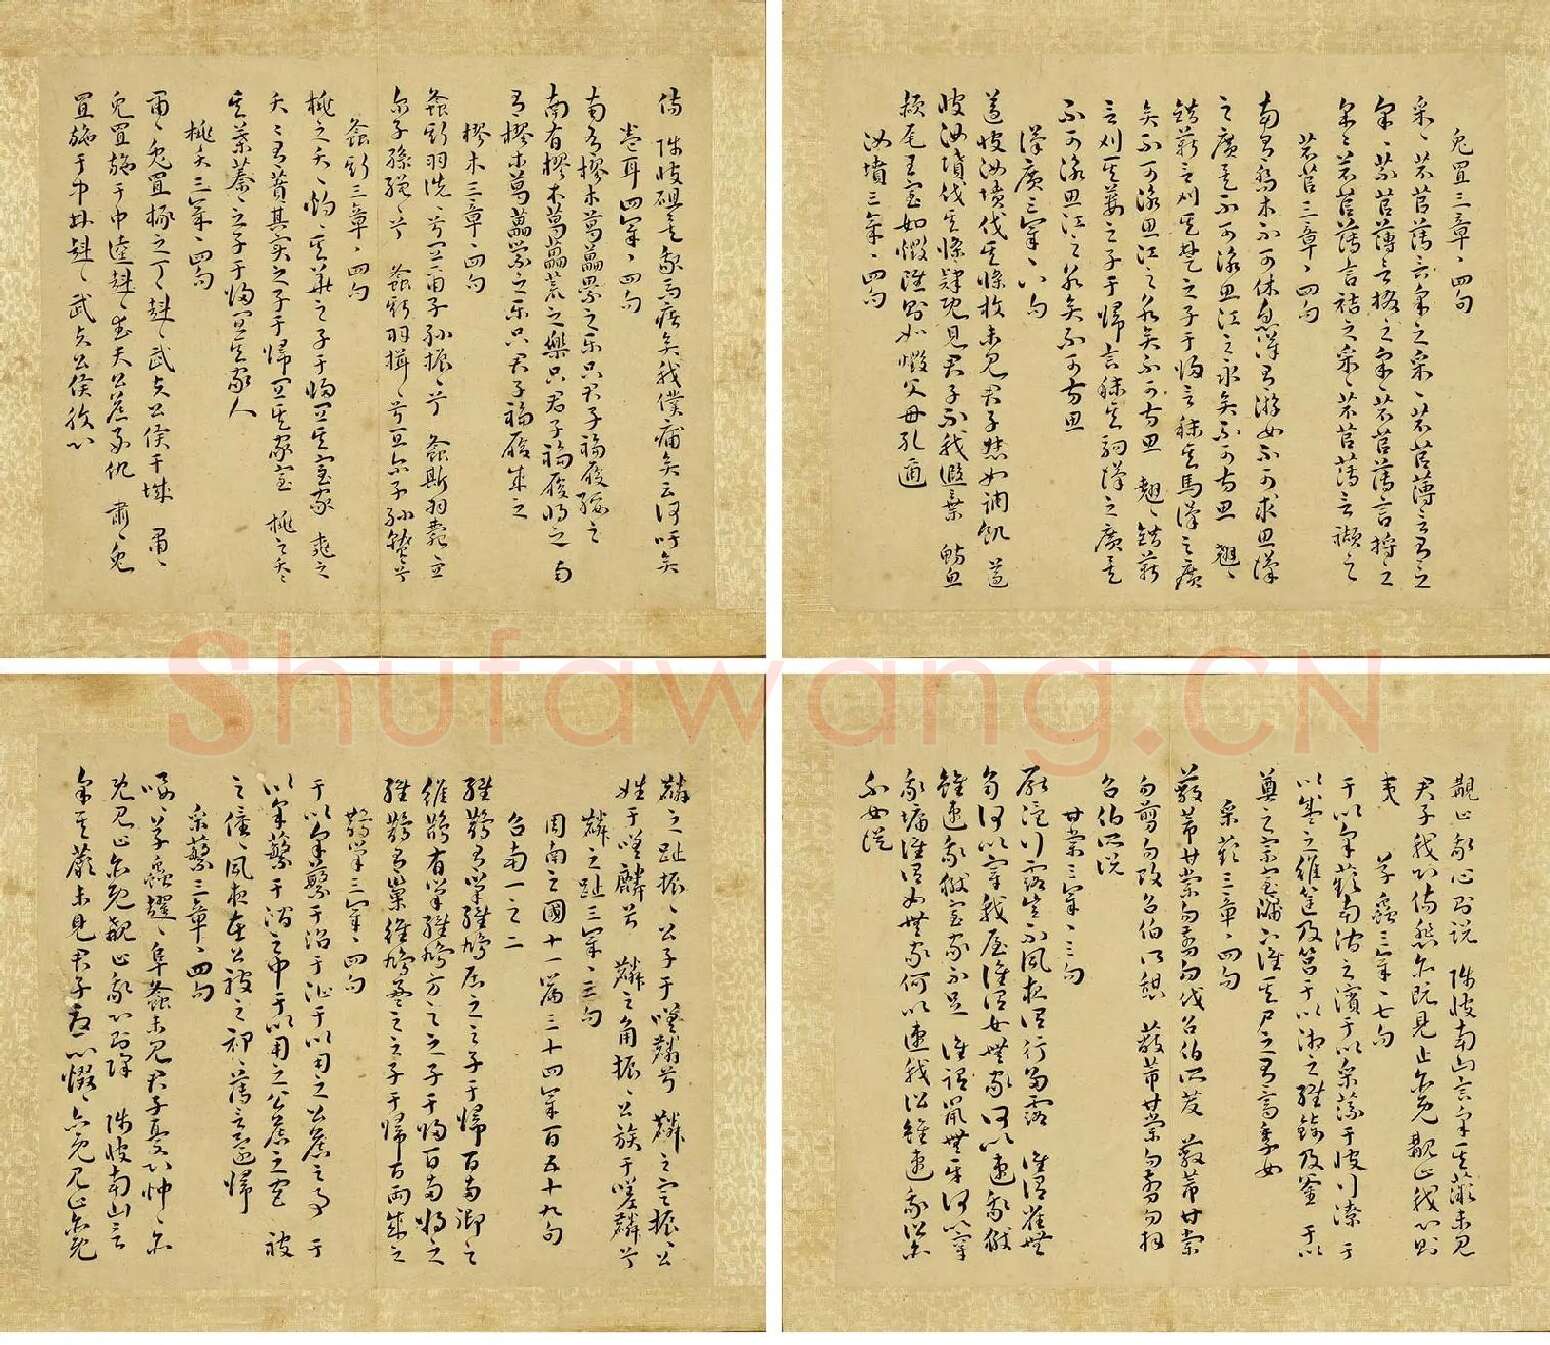 傷 陟彼砠矣我馬瘏矣我僕痡矣云何吁矣
卷耳四章々四句
南有樛木葛藟纍之樂只君子福履綏之
南有樛木葛藟荒之樂只君子福履將之 南
有樛木葛藟縈之樂只君子福履成之
樛木三章々四句
螽斯羽詵々兮宜爾子孫振々兮 螽斯羽薨々宜
爾子孫繩々兮 螽斯羽揖々兮宜爾子孫蟄々兮
螽斯三章々四句
桃之夭々灼々其華之子于歸宜其室家 桃之
夭々有蕡其實之子于歸宜其家室 桃之夭々
其葉蓁々之子于歸宜其家人
桃夭三章々四句
肅々兔罝椓之丁々赳々武夫公侯干城 肅々
兔罝施于中逵赳々武夫公侯好仇 肅々兔
罝施于中林赳々武夫公侯腹心
兔罝三章々四句
采々芣苢薄言采之采々芣苢薄言有之
采々芣苢薄言掇之采々芣苢薄言捋之
采々芣苢薄言袺之采々芣苢薄言襭之
芣苢三章々四句
南有喬木不可休息漢有游女不可求思漢
之廣矣不可泳思江之永矣不可方思 翹々
錯薪言刈其楚之子于歸言秣其馬漢之廣
矣不可泳思江之永矣不可方思 翹々錯薪
言刈其蔞之子于歸言秣其駒漢之廣矣
不可泳思江之永矣不可方思
漢廣三章々八句
遵彼汝墳伐其條枚未見君子惄如調飢 遵
彼汝墳伐其條肄既見君子不我遐棄 魴魚
赬尾王室如燬雖則如燬父母孔邇
汝墳三章々四句
麟之趾振々公子于嗟麟兮 麟之定振々公
姓于嗟麟兮 麟之角振々公族于嗟麟兮
麟之趾三章々三句
周南之國十一篇三十四章百五十九句
召南一之二
維鵲有巢維鳩居之之子于歸百兩御之
維鵲有巢維鳩方之之子于歸百兩將之
維鵲有巢維鳩盈之之子于歸百兩成之
鵲巢三章々四句
于以采蘩于沼于沚于以用之公侯之事 于
以采蘩于澗之中于以用之公侯之宮 被
之僮々夙夜在公被之祁々薄言還歸
采蘩三章々四句
喓々草蟲趯々阜螽未見君子憂心忡々亦
既見止亦既覯止我心則降 陟彼南山言
采其蕨未見君子憂心惙々亦既見止亦既
覯止我心則說 陟彼南山言采其薇未見
君子我心傷悲亦既見止亦既覯止我心則
夷 草蟲三章々七句
于以采蘋南澗之濱于以采藻于彼行潦 于
以盛之維筐及筥于以湘之維錡及釜 于以
奠之宗室牖下誰其尸之有齊季女
采蘋三章々四句
蔽芾甘棠勿翦勿伐召伯所茇 蔽芾甘棠
勿翦勿敗召伯所憩 蔽芾甘棠勿翦勿拜
召伯所說
甘棠三章々三句
厭浥行露豈不夙夜謂行多露 誰謂雀無
角何以穿我屋誰謂女無家何以速我獄
雖速我獄室家不足 誰謂鼠無牙何以穿
我墉誰謂女無家何以速我訟雖速我訟亦
不女從
Shufawang.CN